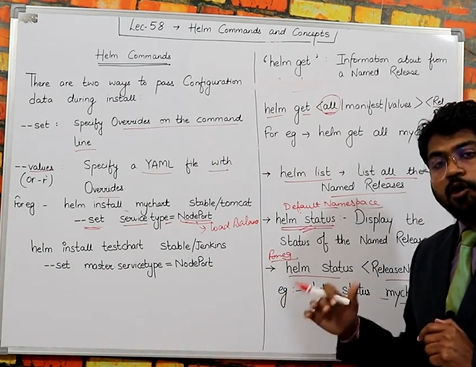 Lec-58 → Helm Commands and Concepts
Helm Commands
There are two ways to pass Configuration
data during install
--set : Specify Overrides on the command
line
--values Specify a YAML file with
(or -f) Overrides
For eg - helm install mychart stable/tomcat
--set servicetype = NodePort
→ Load Balance
helm install testchart stable/Jenkins
--set master.servicetype = NodePort
'helm get' : Information about from
a Named Release
helm get <all/manifest/values> <Rel
For eg → helm get all myc
→ helm list → List all the
Named Releases
Default Namespace
→ helm status - Display the
Status of the Named Releas
For eg
→ helm status <ReleaseN
eg → status mych